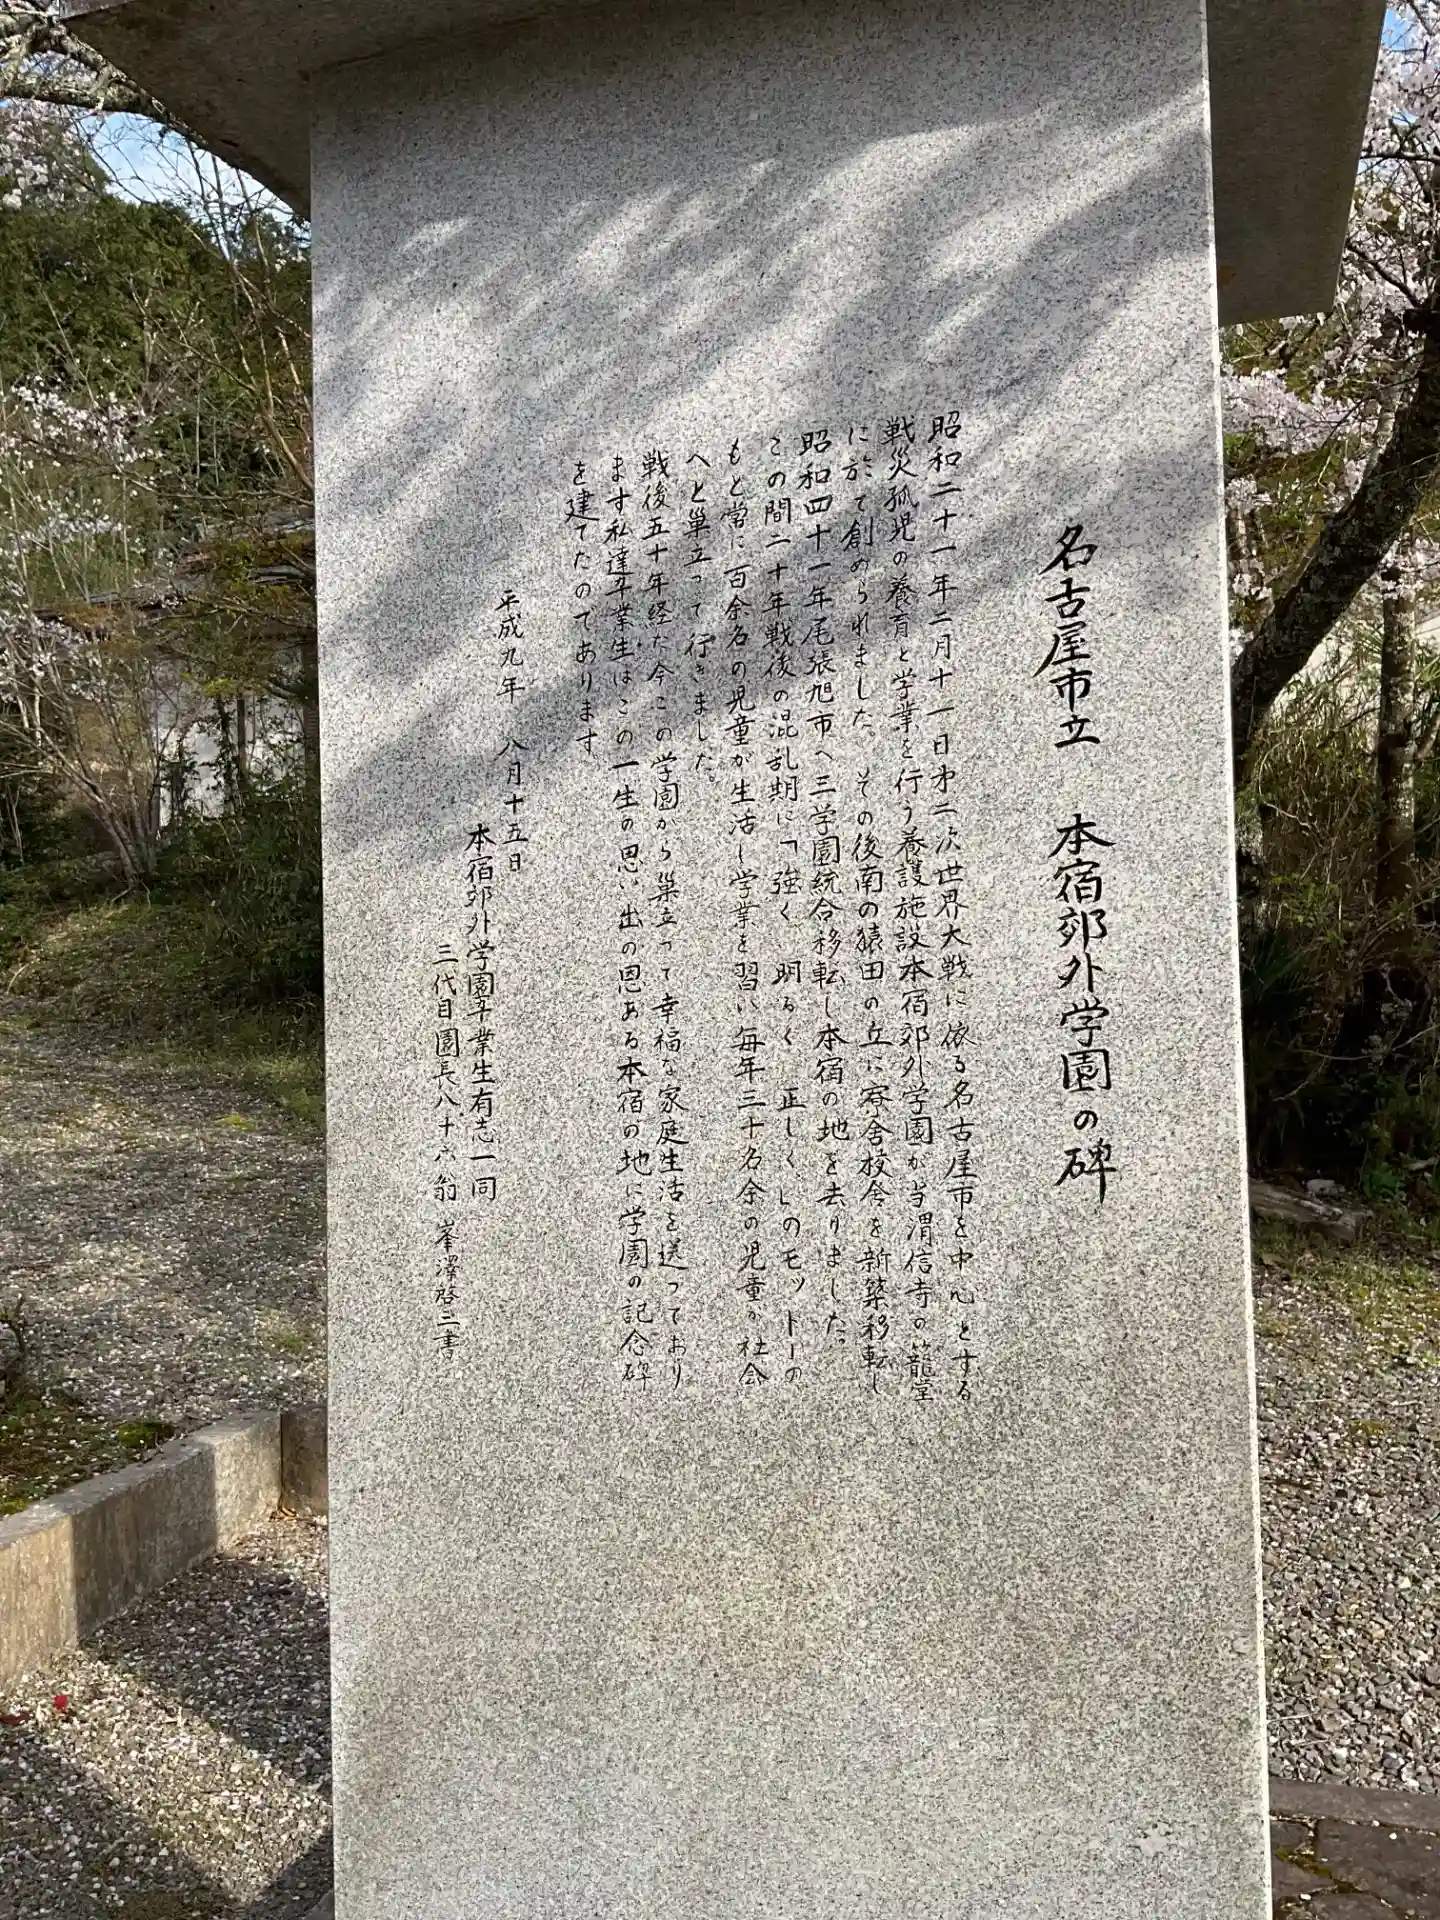 名古屋市立 本宿郊外学園の碑
昭和二十一年二月十一日㐧二次世界大戦に依る名古屋市を中心とする
戦災孤児の養育と学業を行う養護施設本宿郊外学園が当渭信寺の籠堂
に於て創められました。その後南の猿田の丘に寮舎校舎を新築移転し
昭和四十一年尾張旭市へ三学園統合移転し本宿の地を去りました。
この間二十年戦後の混乱期に「強く、明るく、正しく」のモットーの
もと常に百余名の児童が生活し学業を習い毎年三十名余の児童が社会
へと巣立って行きました。
戦後五十年経た今この学園から巣立って幸福な家庭生活を送っており
ます私達卒業生はこの一生の思い出の恩ある本宿の地に学園の記念碑
を建てたのであります。
平成九年 八月十五日
本宿郊外学園卒業生有志一同
三代目園長八十六翁 峯澤啓三書